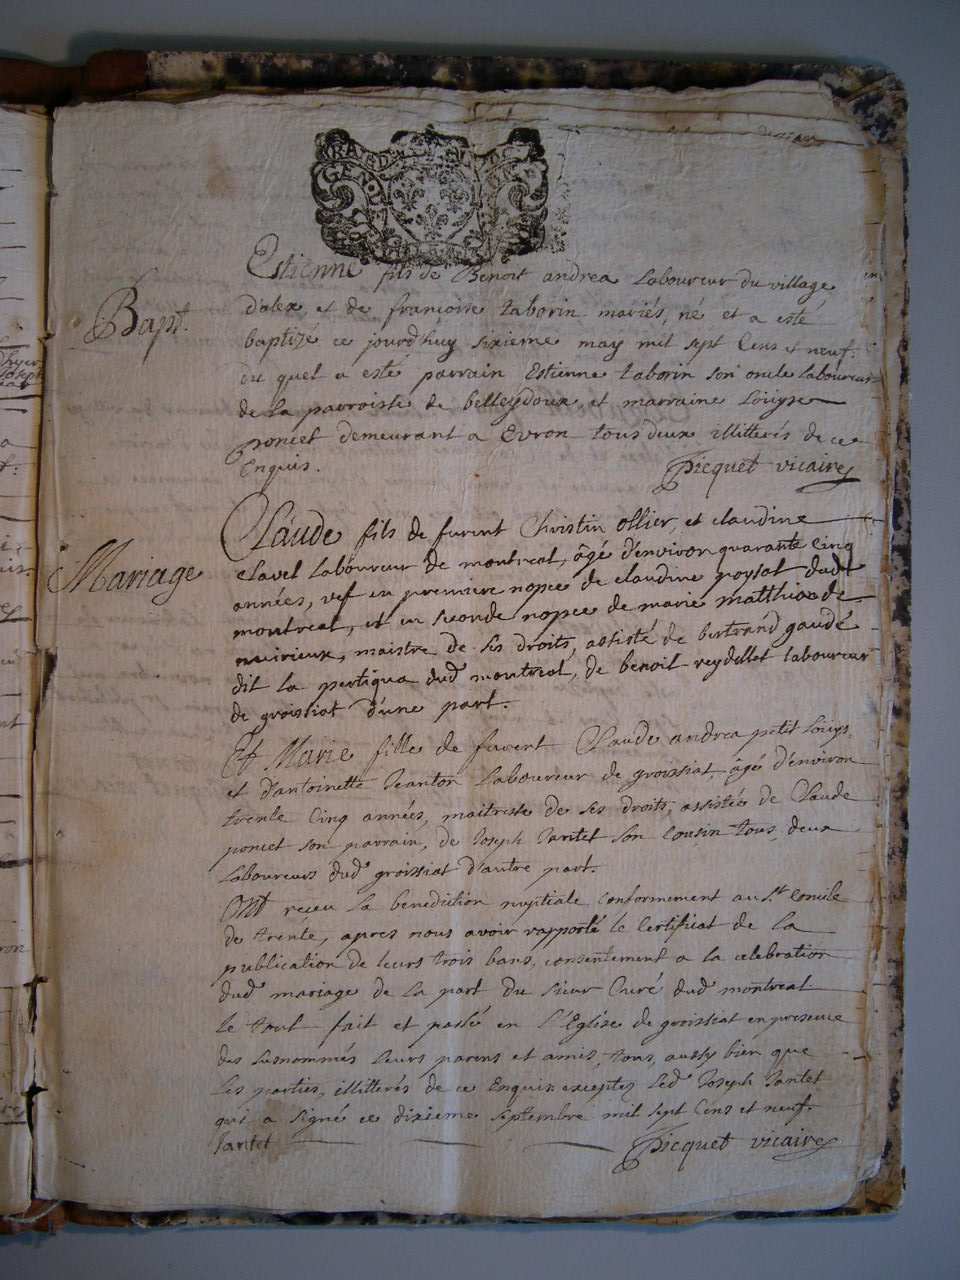 GEN.D
Bapt.
Estienne fils de Benoit andrea Laboureur du village
d'alex et de françoise taborin mariés, né et a esté
baptizé ce jourdhuy sixieme may mil sept Cens et neuf.
du quel a esté parrain Estienne taborin son oncle laboureur
de la parroisse de belleydoux et marraine Loüyse
poncet demeurant a Evron tous deux illiterés de ce
Enquis. Picquet vicaire
Mariage
Claude fils de furent Christin ollier, et claudine
clavel Laboureur de montreal, âgé d'environ quarante cinq
années, vef en premiere nopce de claudine poysat dudt
montreal, et en seconde nopce de marie matthieu de
maistre de ses droits, assisté de bertrand gaudé
dit la pertiqua dudt montreal, de benoit reydellet laboureur
de groissiat d'une part.
Et Marie fille de furent Claude andrea petit Loüys
et d'antoinette Jeanton Laboureur de groissiat, âgé d'environ
trente Cinq années, maitresse de ses droits, assistée de Claude
poncet son parrain, de Joseph Jantet son Cousin tous, deux
Laboureurs dudt groissiat d'autre part.
Ont receu la benediction nuptiale conformement au St Concile
de trente, apres nous avoir rapporté le Certificat de la
publication de leurs trois bans, consentement a la celebration
dudt mariage de la part du sieur Curé dudt montreal
le tout fait et passé en l'Eglise de groissiat en presence
des susnommés leurs parens et amis, tous, aussy bien que
les parties, illiterés de ce Enquis exceptez ledt Joseph Jantet
qui a signé ce dixieme septembre mil sept Cens et neuf.
Jantet Picquet vicaire